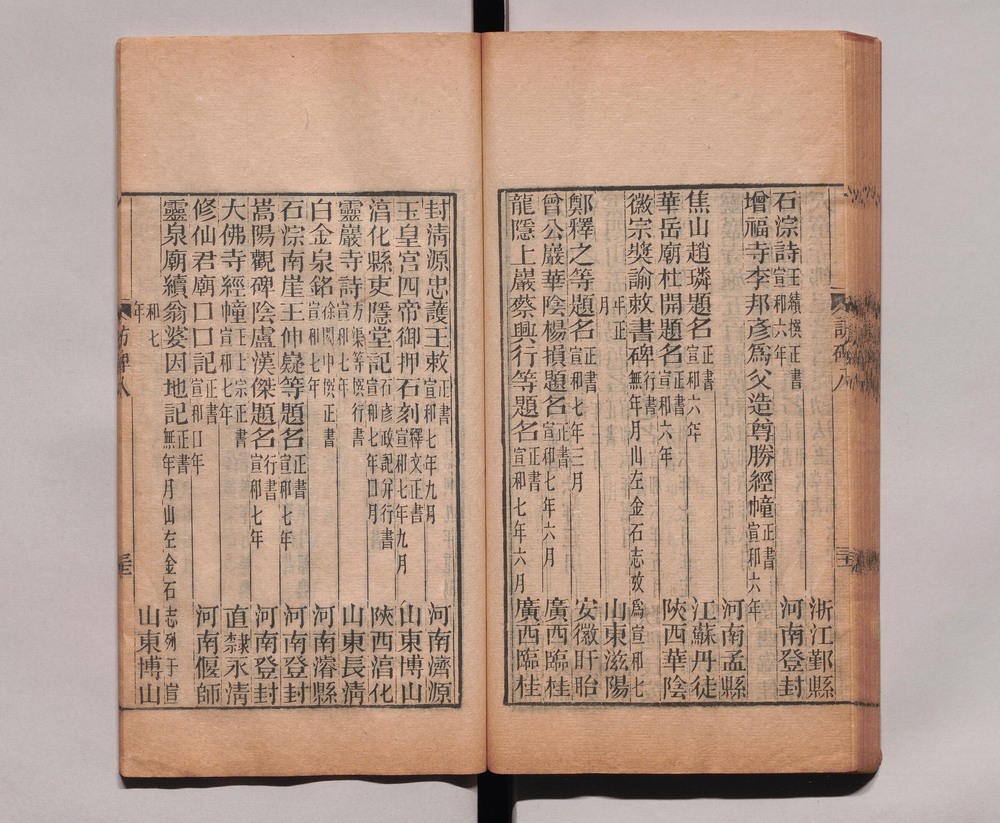 浙江鄞縣
石淙詩正書王績撰宣和六年河南登封
增福寺李邦彥爲父造尊勝經幢正書宣和六年
河南孟縣
焦山趙璘題名正書宣和六年江蘇丹徒
華岳廟杜開題名正書宣和六年陝西華陰
徽宗奬諭敕書碑行書無年月山左金石志攷爲宣和七
年正月山東滋陽
鄭釋之等題名正書宣和七年三月安徽盱眙
曾公巖華陰楊損題名正書宣和七年六月廣西臨桂
龍隱上巖蔡興行等題名正書宣和七年六月廣西臨桂
封清源忠護王敕正書宣和七年九月河南濟源
玉皇宮四帝御押石刻釋文正書宣和七年九月山東博山
淳化縣吏隱堂記石彥政記并行書宣和七年口月陝西淳化
靈巖寺詩方渠等撰行書宣和七年山東長清
白金泉銘徐閎中撰正書宣和七年河南濬縣
石淙南崖王仲嶷等題名正書宣和七年河南登封
嵩陽觀碑陰盧漢傑題名行書宣和七年河南登封
大佛寺經幢王上宗正書宣和七年直隸永清
修仙君廟口口記正書宣和口年河南偃師
靈泉廟續翁婆因地記正書無年月山左金石志列于宣
和七年山東博山
訪碑八
三十三